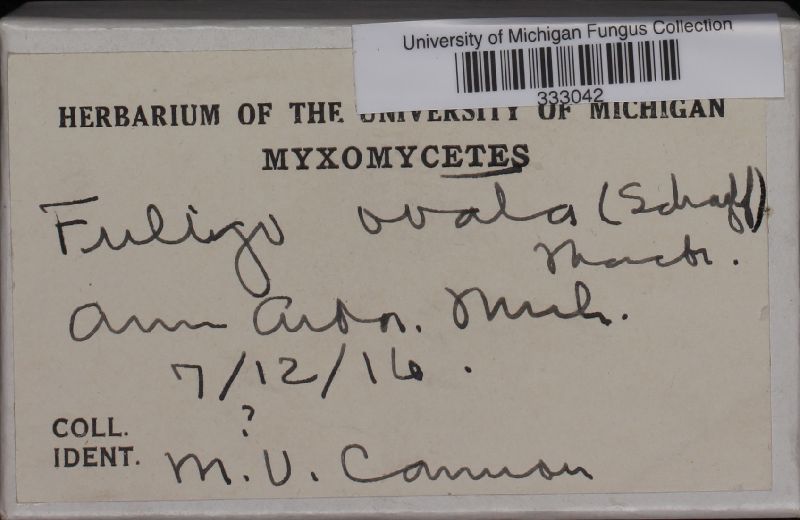 University of Michigan Fungus Collection
333042
HERBARIUM OF THE UNIVERSITY OF MICHIGAN
MYXOMYCETES
Fuligo ovata (Schaeff)
Macbr.
Ann Arbor. Mich.
7/12/16.
COLL. ?
IDENT. M. V. Cannon